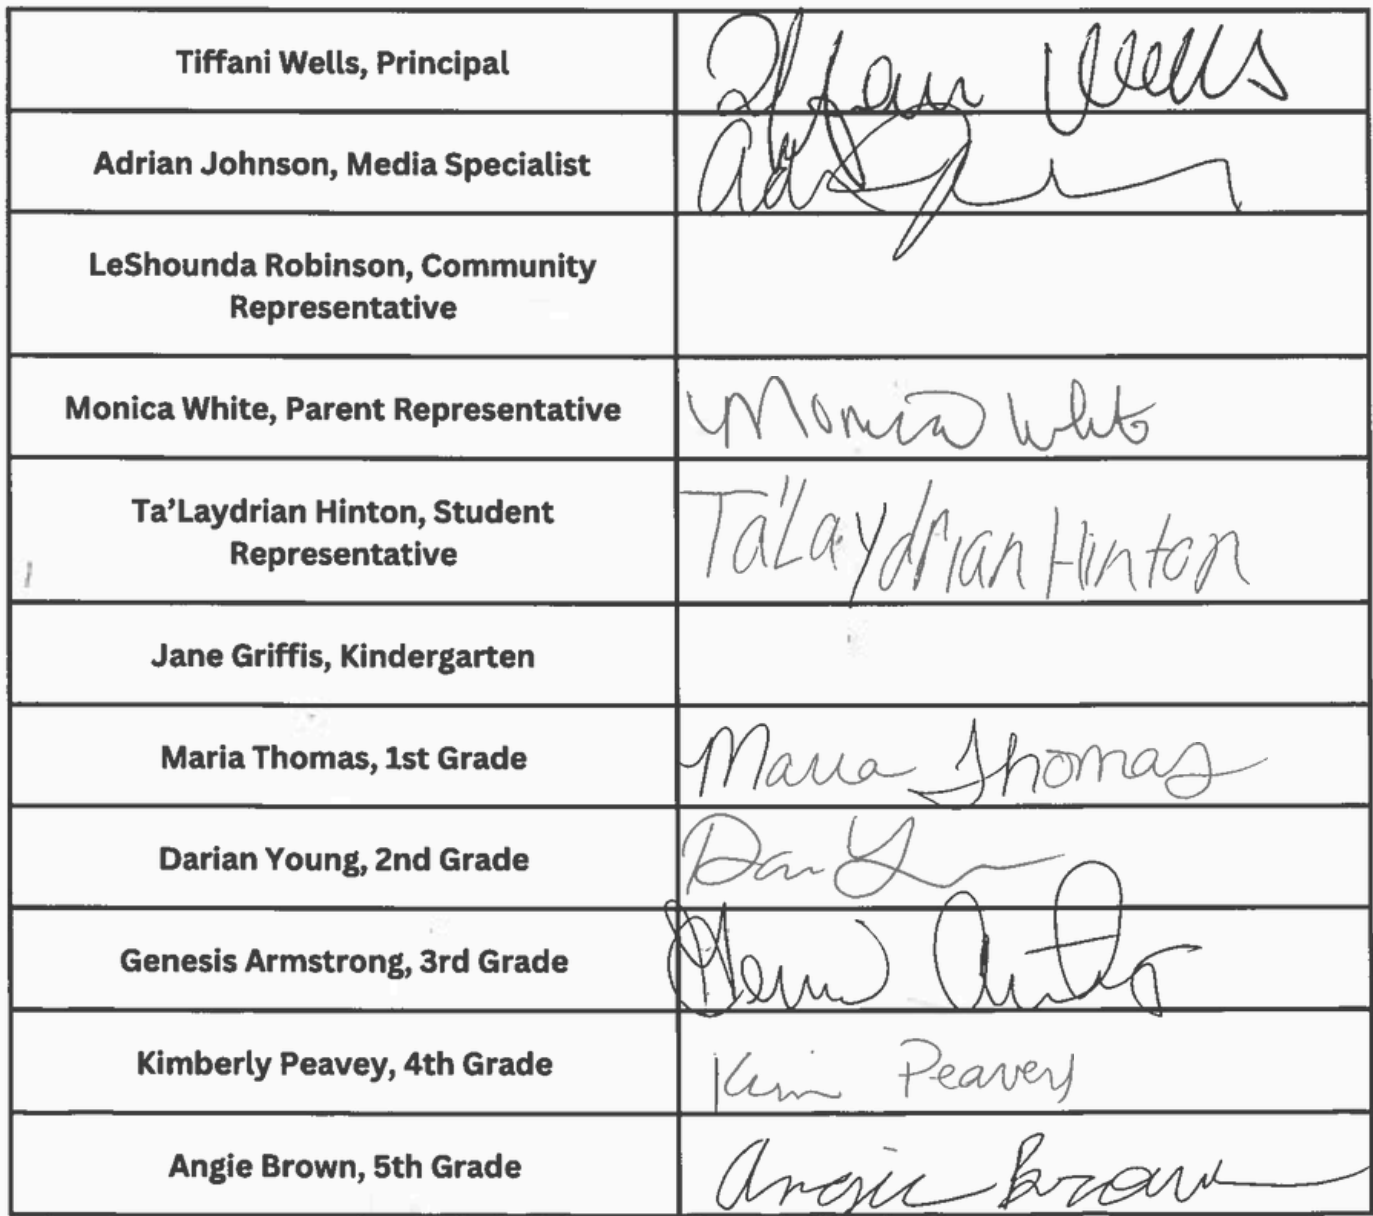 Tiffani Wells, Principal
Tiffani Wells
Adrian Johnson, Media Specialist
LeShounda Robinson, Community
Representative
Monica White, Parent Representative
Monica White
Ta’Laydrian Hinton, Student
Representative
Ta'Laydrian Hinton
Jane Griffis, Kindergarten
Maria Thomas, 1st Grade
Maria Thomas
Darian Young, 2nd Grade
Genesis Armstrong, 3rd Grade
Kimberly Peavey, 4th Grade
Kim Peavey
Angie Brown, 5th Grade
Angie Brown